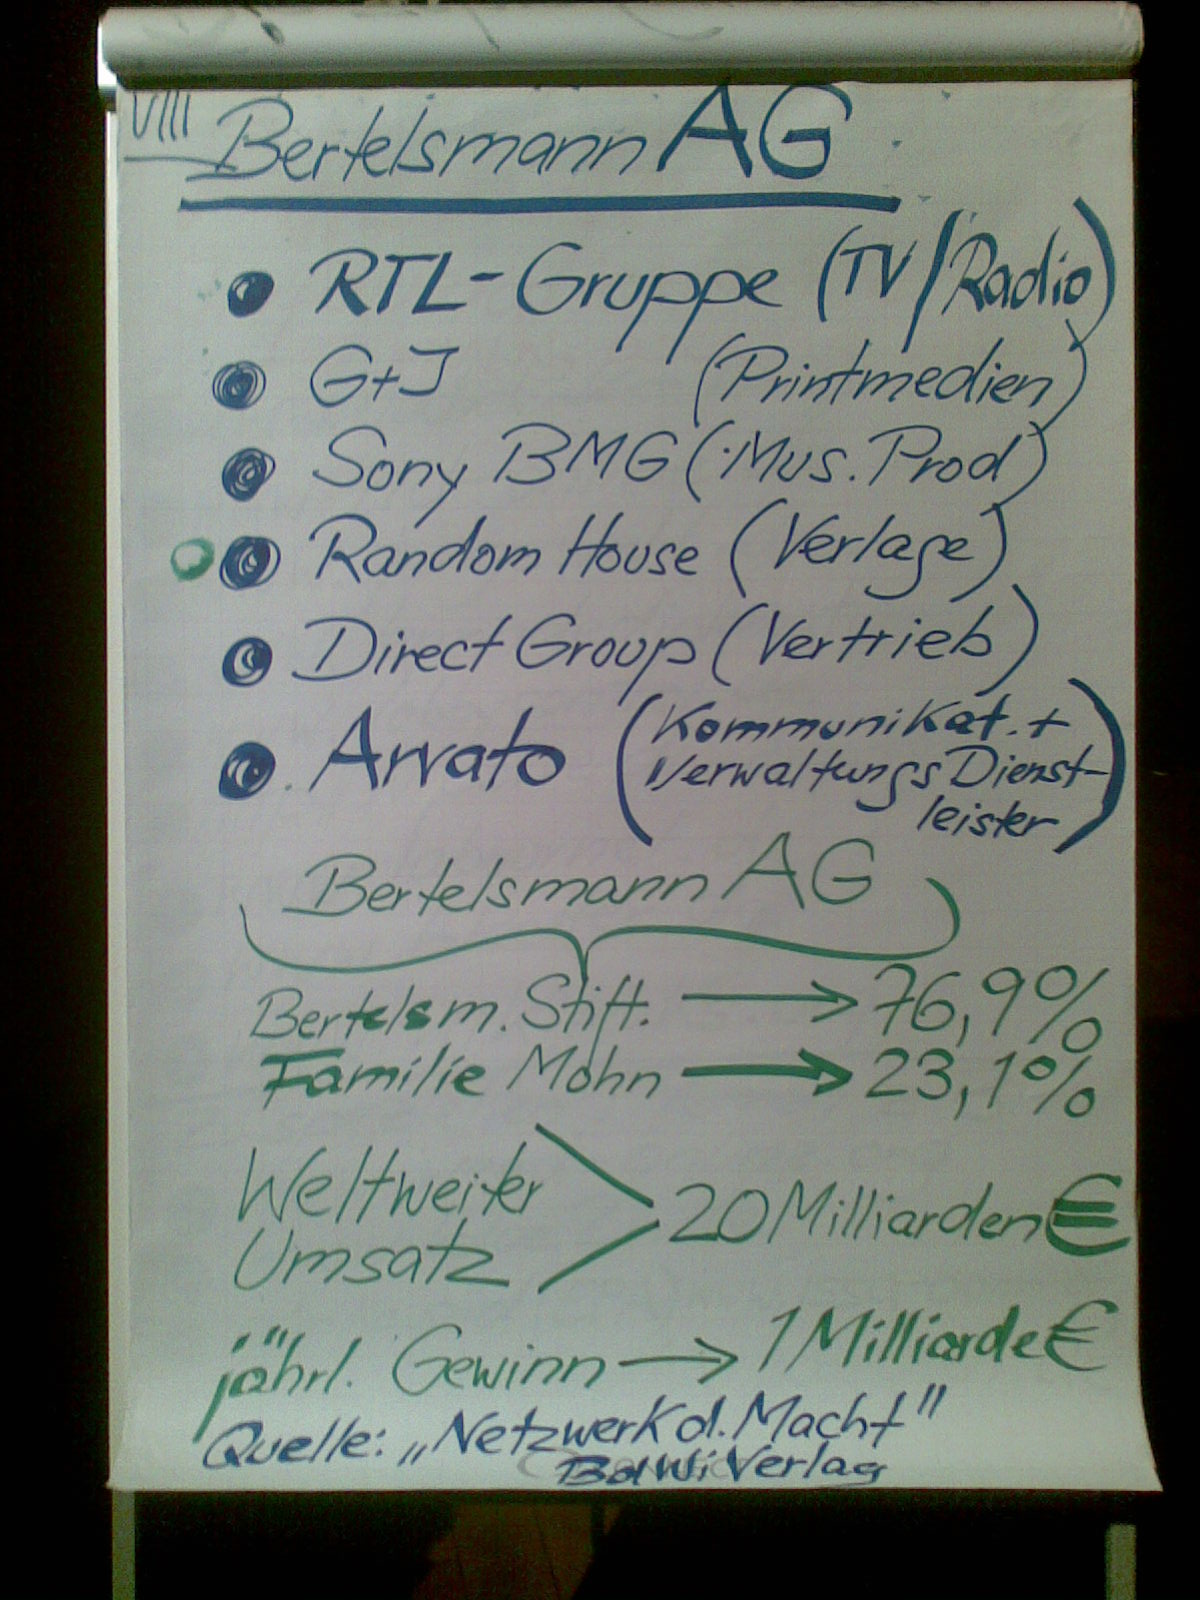 VIII Bertelsmann AG
RTL-Gruppe (TV/Radio)
G+J (Printmedien)
Sony BMG (Mus. Prod)
Random House (Verlage)
Direct Group (Vertrieb)
Arvato (Kommunikat. +
Verwaltungs Dienst-
leister)
Bertelsmann AG
Bertelsm. Stift. → 76,9%
Familie Mohn → 23,1%
Weltweiter
Umsatz 20 Milliarden €
jährl. Gewinn → 1 Milliarde €
Quelle: „Netzwerk d. Macht"
BdWi Verlag